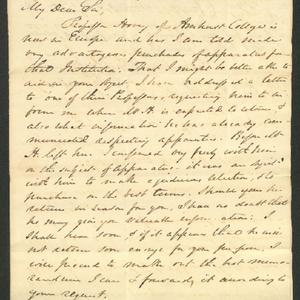 My Dear Sir,
Professor Hovey of Amherst College is
now in Europe and has I am told made
very advantageous purchases of apparatus for
that Institution. That I might be better able to
aid you I have a letter
to one of their Professors, requesting him to in-
form me when Mr H. is expected to return &
also what information he has already com-
municated respecting apparatus. Before Mr
H. left me I conferred very freely with him
on the subject of apparatus, it was an object
with him to make a judicious selection, & to
purchase on the best terms. Should you
return in season for you, I have no doubt that
he may give you valuable information; I
shall him soon & if it appears that he will
not return soon enough for your purpose, I
will proceed to make out the best memo-
randum I can & forward it according to
your request.